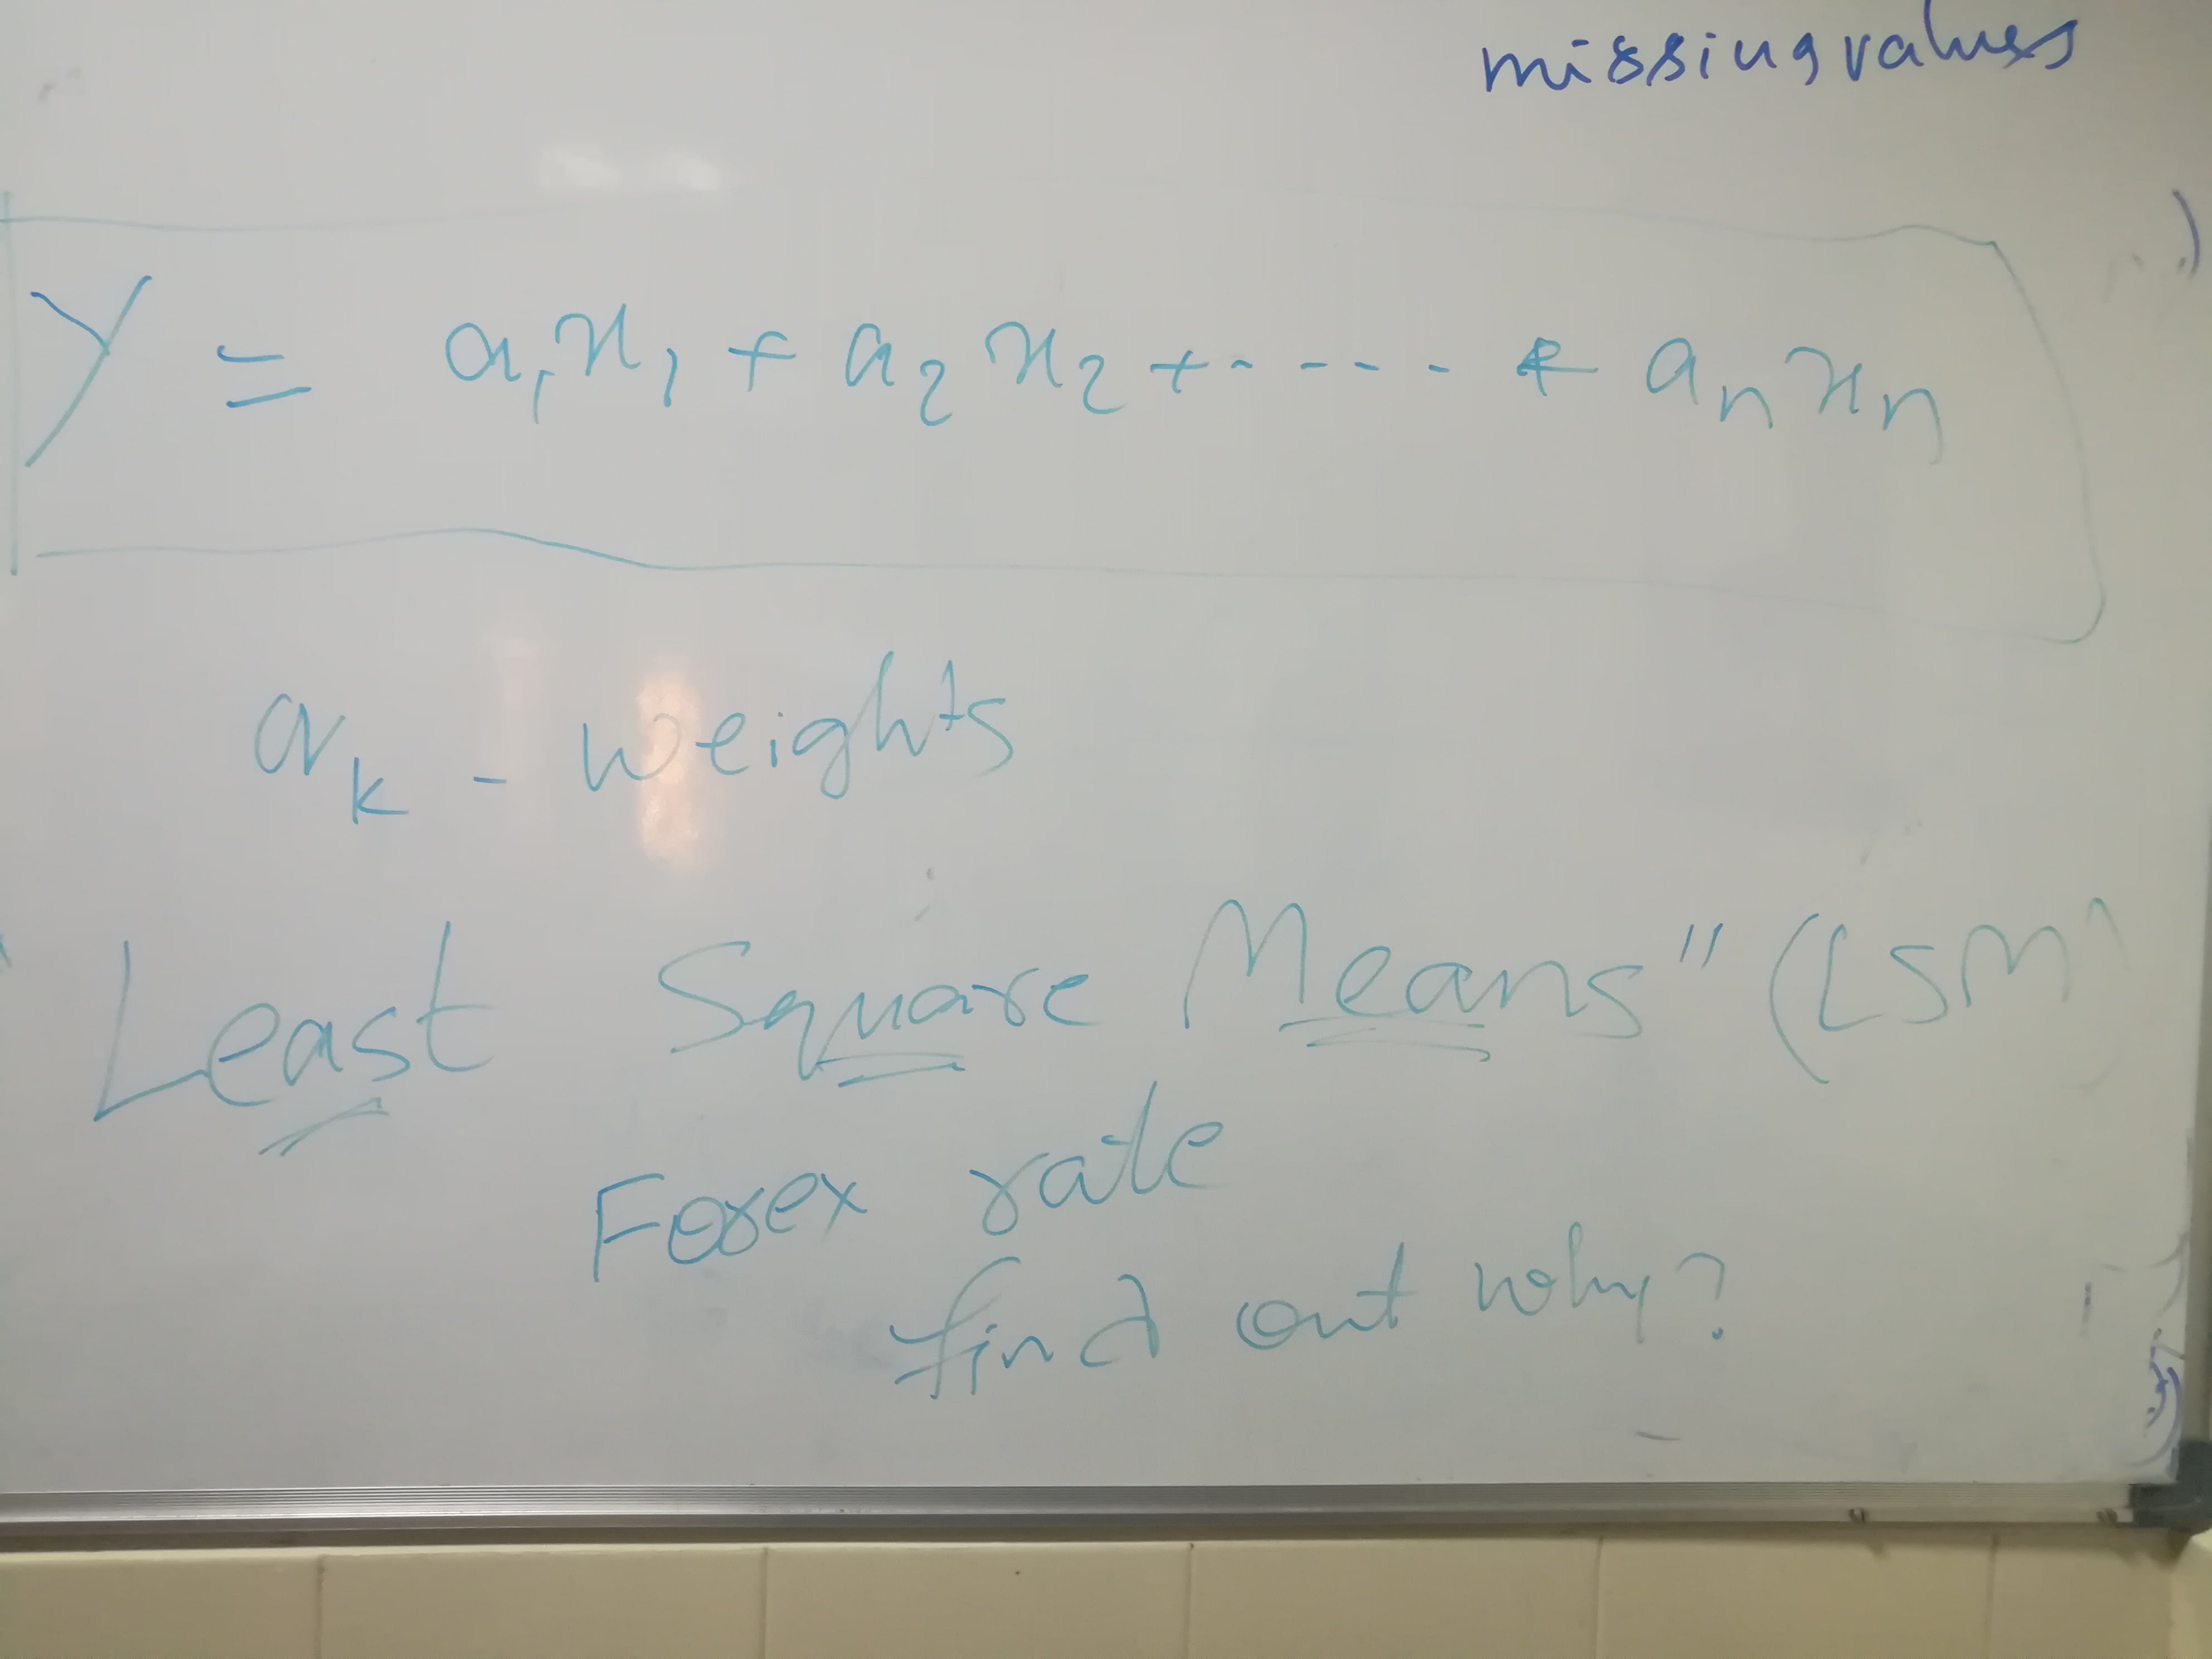 missing values
Y = a₁x₁ + a₂x₂ + ..... + aₙxₙ
aₖ - weights
Least Square Means" (LSM)
Forex rate
find out why?